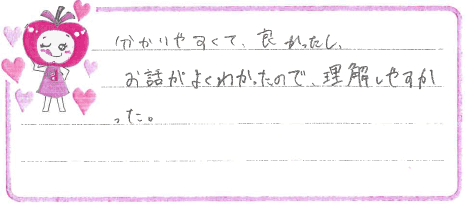 分かりやすくて、良かったし、
お話がよくわかったので、理解しやすか
った。